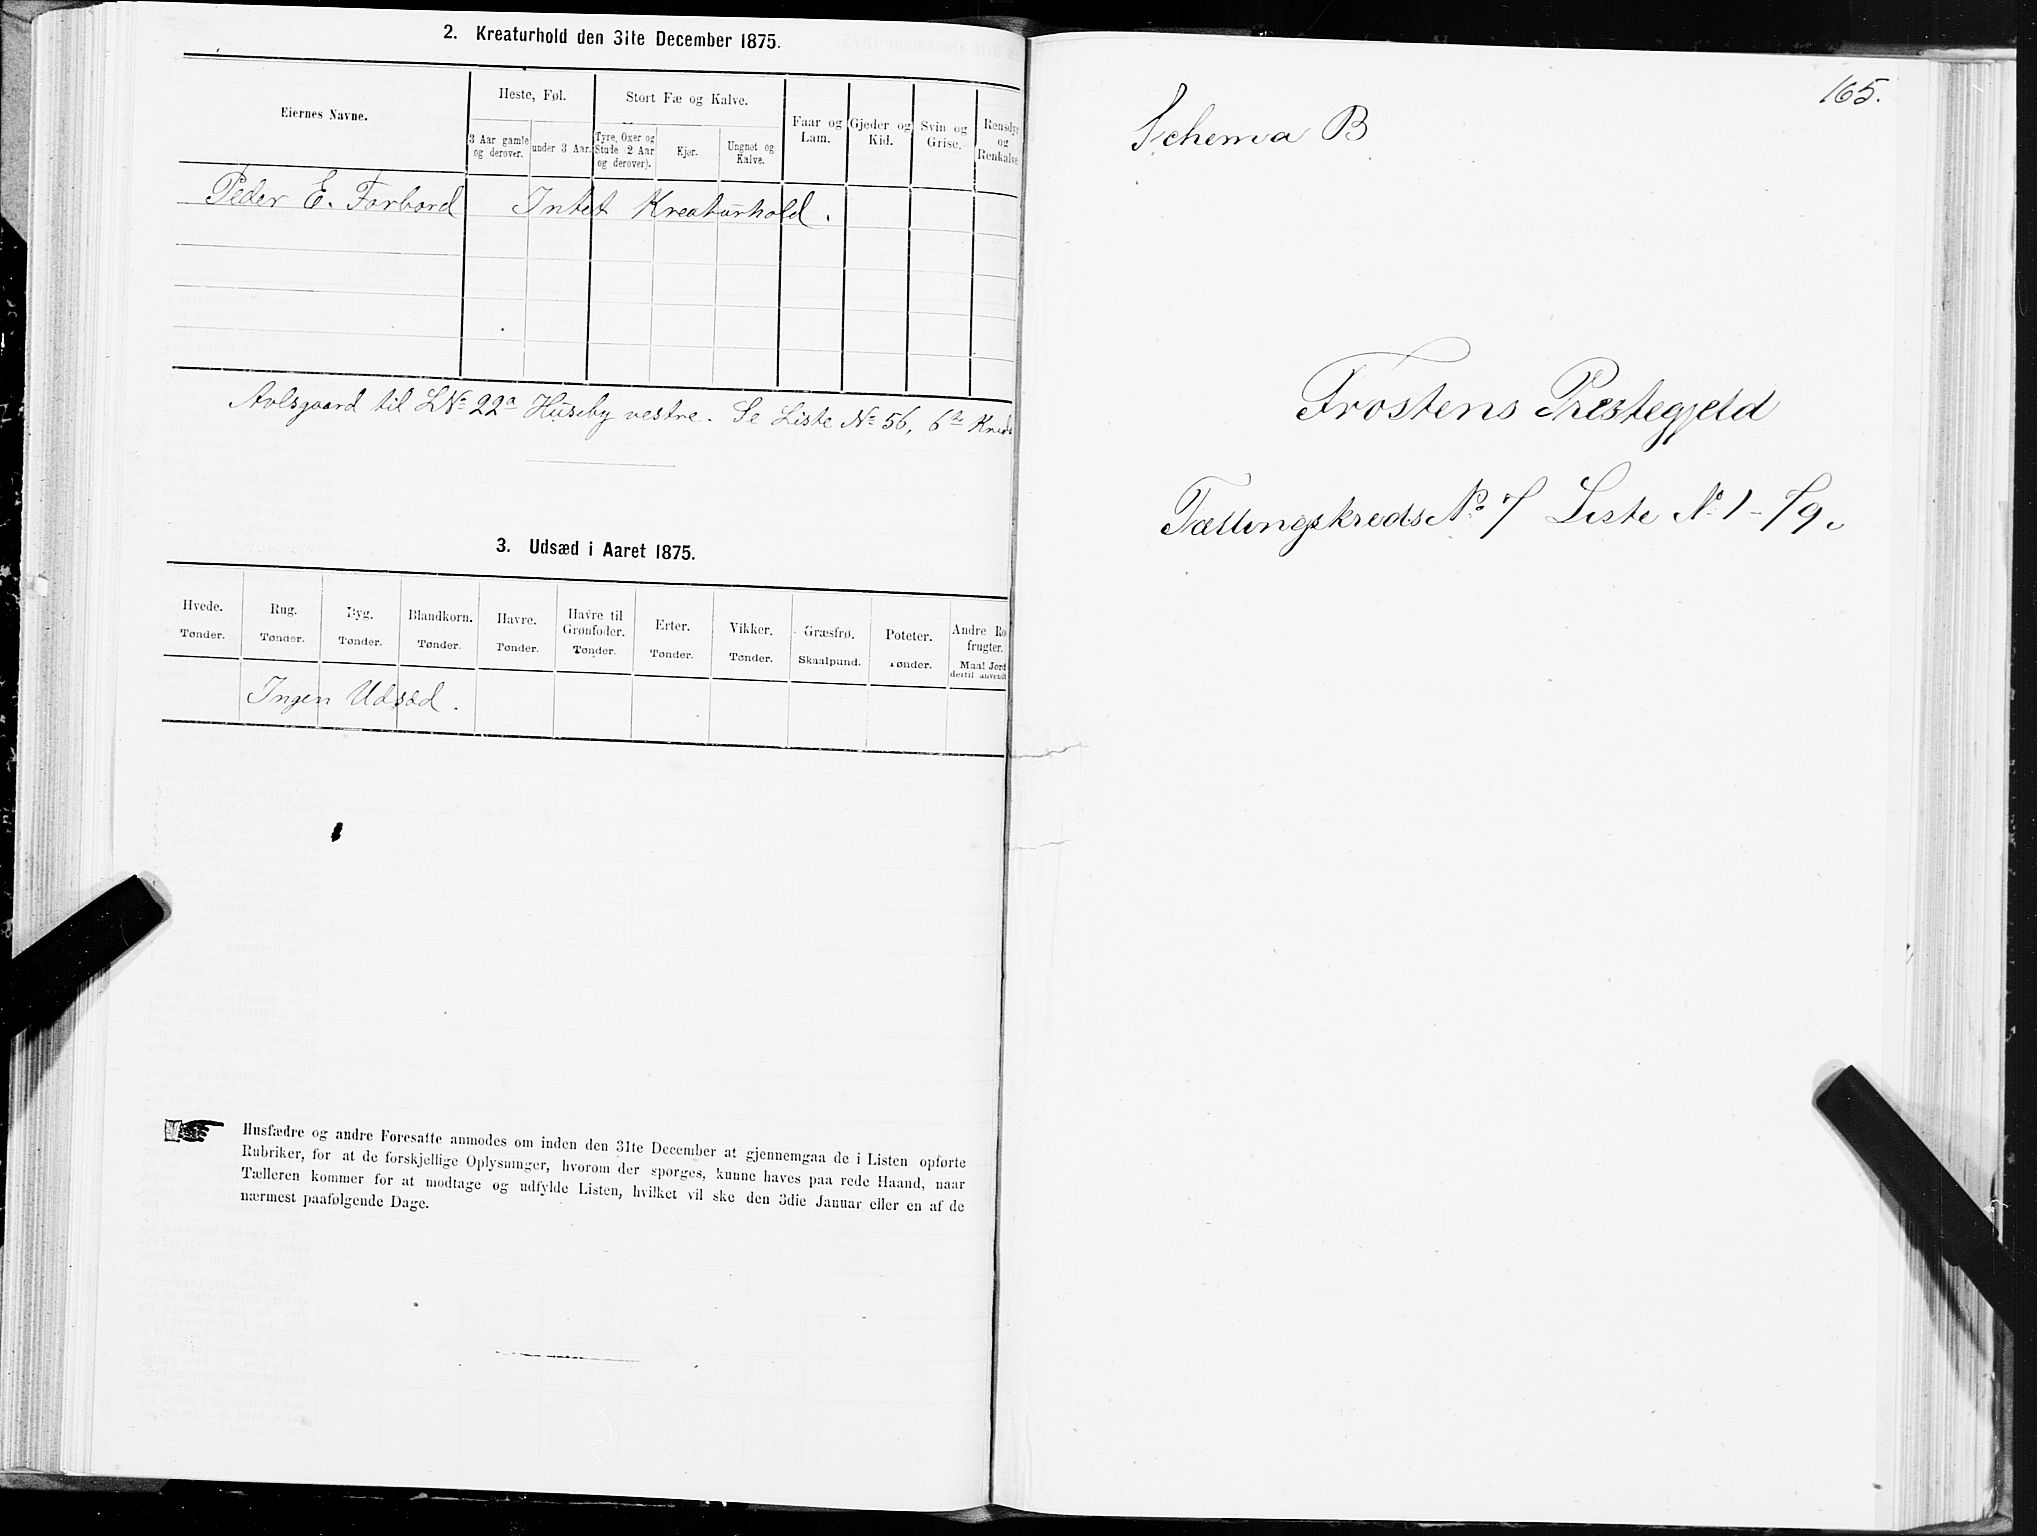 2. Kreaturhold den 31te December 1875.
Eiernes Navne.
Heste, Føl.
Stort Fæ og Kalve.
Faar og Lam.
Gjeder og Kid.
Svin og Grise.
Rensdyr og Renkalve
3 Aar gamle og derover.
under 3 Aar.
Tyre, Oxer og Stude 2 Aar og derover).
Kjør.
Ungnøt og Kalve.
Peder E. Forbord Intet Kreaturhold.
Avlsgaard til LNo 22a Huseby vestre. Se Liste No 56, 6te Kreds
3. Udsæd i Aaret 1875.
Hvede. Tønder.
Rug. Tønder.
Byg. Tønder.
Blandkorn. Tønder.
Havre. Tønder.
Havre til Grønfoder. Tønder.
Erter. Tønder.
Vikker. Tønder.
Græsfrø. Skaalpund.
Poteter. Tønder.
Andre Ro- frugter. Maal Jord dertil anvendt
Ingen Udsæd.
Husfædre og andre Foresatte anmodes om inden den 31te December at gjennemgaa de i Listen opførte
Rubriker, for at de forskjellige Oplysninger, hvorom der spørges, kunne haves paa rede Haand, naar
Tælleren kommer for at modtage og udfylde Listen, hvilket vil ske den 3die Januar eller en af de
nærmest paafølgende Dage.
165.
Schema B
Frostens Prestegjeld
Tællingskreds No 7 Liste No 1-79.